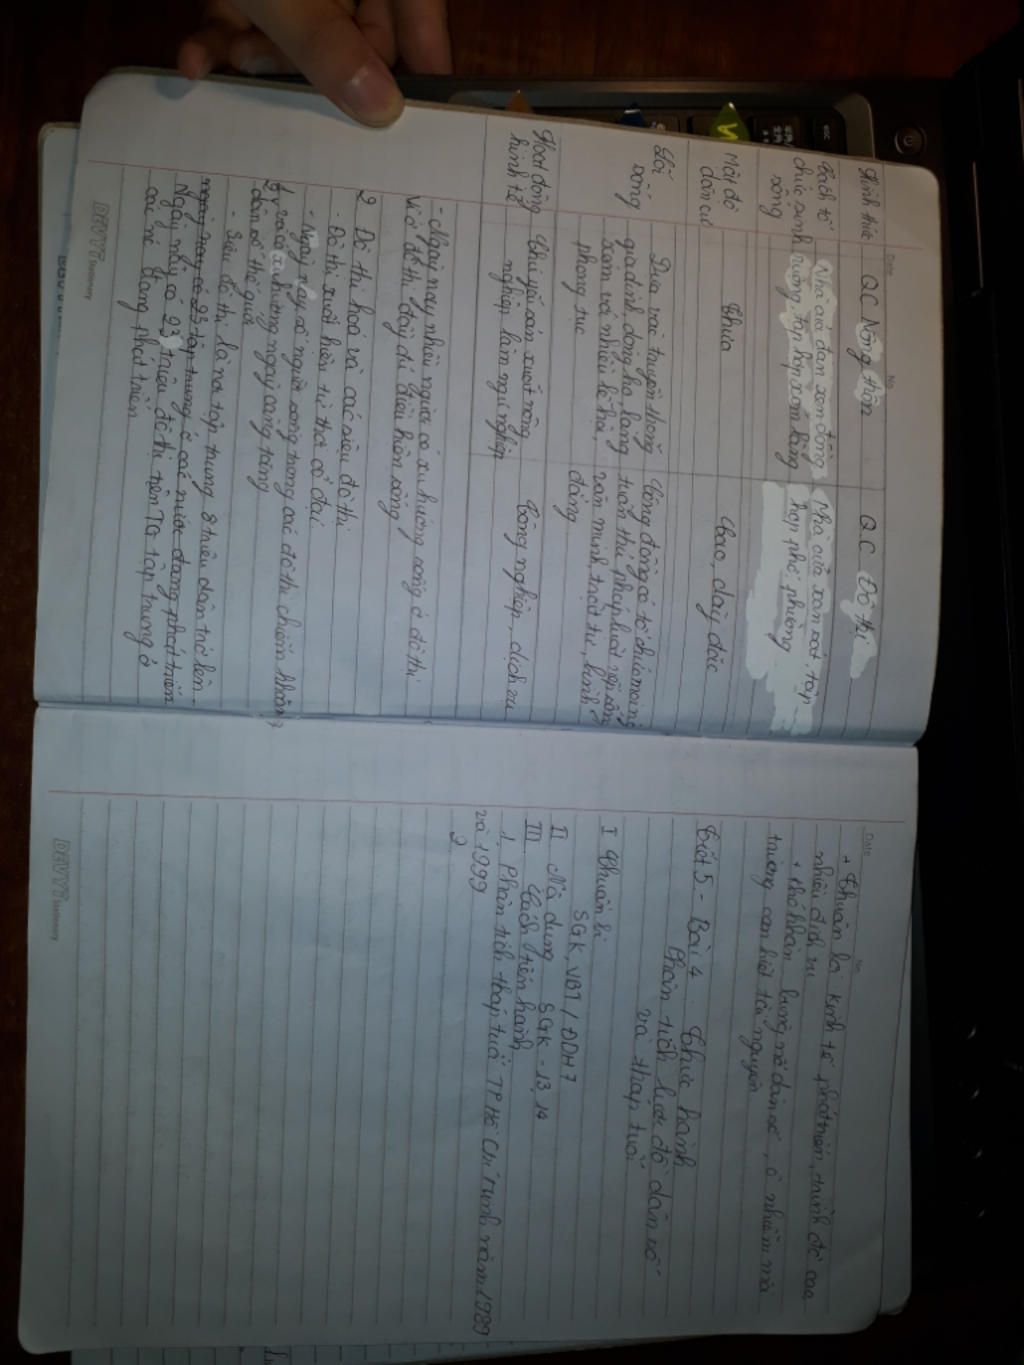 Date
No.
Hình thức QC Nông thôn QC Đô thị
Cách tổ Nhà cửa đan xen đồng Nhà cửa xan xát, tập
chức sinh ruộng, tập hợp xóm làng hợp phố, phường
sống
Mật độ Thưa Cao, dày đặc
dân cư
Lối Dựa vào truyền thống Cộng đồng có tổ chức
sống gia đình dòng họ, làng tuân thủ pháp luật
xóm và nhiều lễ hội, văn minh, trật tự, bình
phong tục đẳng
Hoạt động Chủ yếu sản xuất nông Công nghiệp, dịch vụ
kinh tế nghiệp, lâm ngư nghiệp
- Ngày nay nhiều người có xu hướng sống ở đô thị
vì ở đô thị đầy đủ điều kiện sống
2 Đô thị hoá và các siêu đô thị
- Đô thị xuất hiện từ thời cổ đại
- Ngày nay, số người sống trong các đô thị chiếm khoảng
1/2 và có xu hướng ngày càng tăng
dân số thế giới
- Siêu đô thị là nơi tập trung 8 triệu dân trở lên
ngày nay có 23 tập trung ở các nước đang phát triển
Ngày nay có 23 triệu đô thị trên TG tập trung ở
các nc đang phát triển
DEVYT Stationery
Date
No.
+ Thuận lợi kinh tế phát triển, trình độ cao
nhiều dịch vụ
+ Khó khăn bùng nổ dân số, ô nhiễm mà
trường cạn kiệt tài nguyên
Tiết 5 - Bài 4 Thực hành
Phân tích lược đồ dân số
và tháp tuổi
I Chuẩn bị
SGK, VBT / ĐDHT
II Nội dung SGK - 13, 14
III Cách tiến hành
1. Phân tích tháp tuổi TP Hồ Chí Minh năm 1989
và 1999
2
DEVYT Stationery